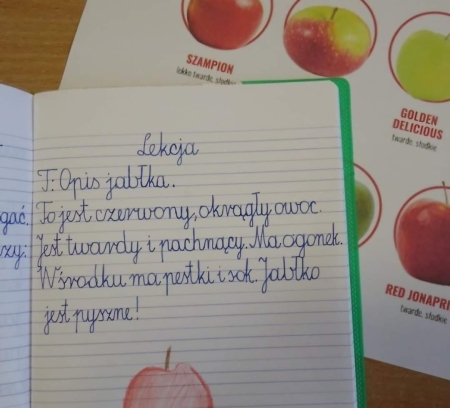 SZAMPION
lekko twarde, słodkie
GOLDEN
DELICIOUS
twarde, słodkie
RED JONAPRI
twarde, słodkie
Lekcja
T: Opis jabłka.
gać. To jest czerwony, okrągły owoc.
zy: Jest twardy i pachnący. Ma ogonek.
W środku ma pestki i sok. Jabłko
jest pyszne!